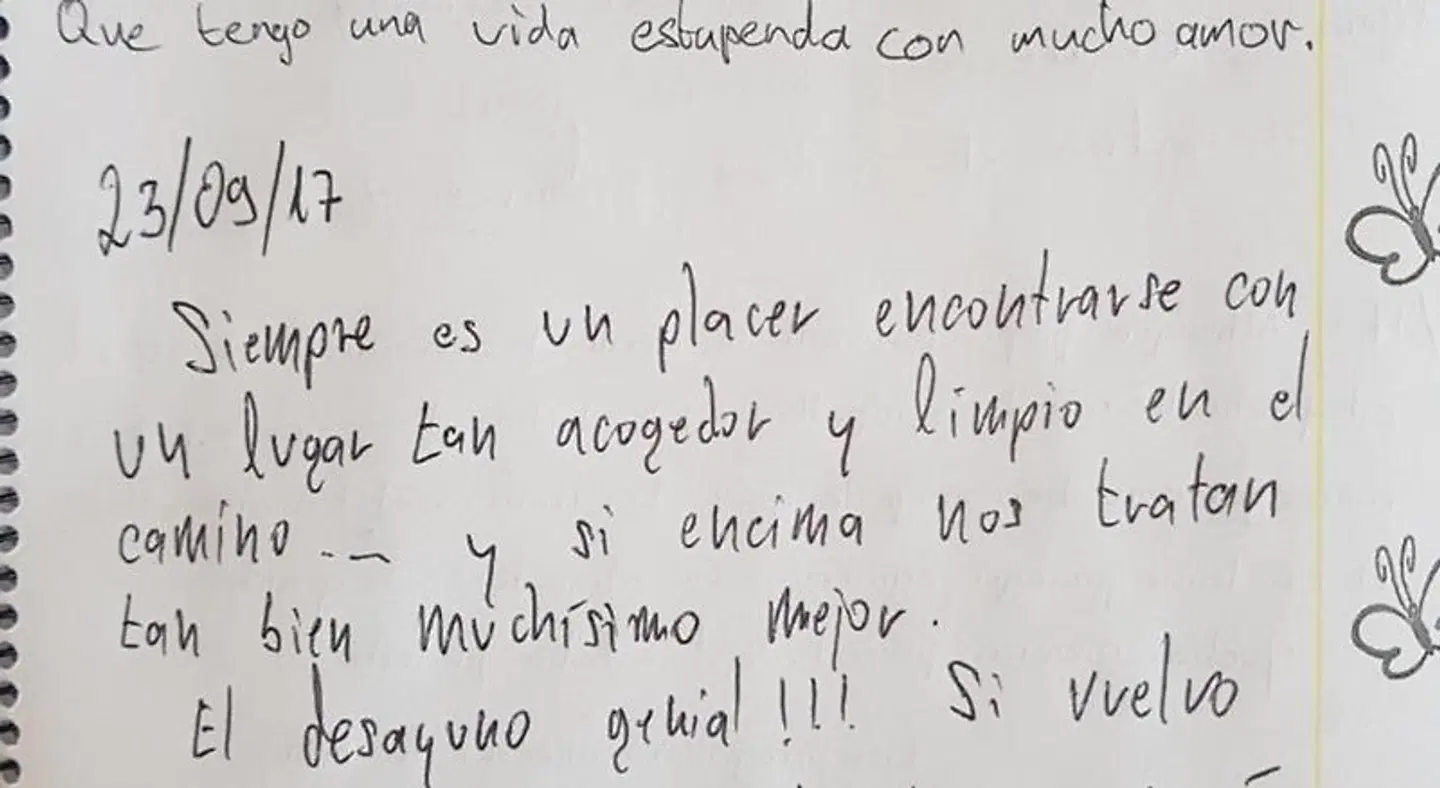 Que tengo una vida estupenda con mucho amor.
23/09/17
Siempre es un placer encontrarse con
un lugar tan acogedor y limpio en el
camino... y si encima nos tratan
tan bien muchísimo mejor.
El desayuno genial!!! Si vuelvo